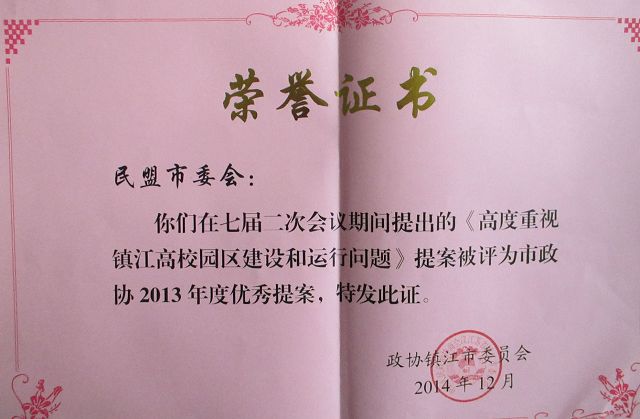 荣誉证书
民盟市委会：
你们在七届二次会议期间提出的《高度重视
镇江高校园区建设和运行问题》提案被评为市政
协2013年度优秀提案，特发此证。
政协镇江市委员会
2014年12月